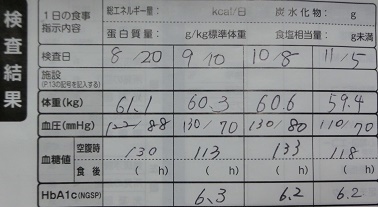 検査結果
1日の食事指示内容 総エネルギー量: kcal/日 炭水化物: g
蛋白質量: g/kg標準体重 食塩相当量: g未満
検査日 8/20 9/10 10/8 11/5
施設
(P.13の記号を記入する)
体重(kg) 61.1 60.3 60.6 59.4
血圧(mmHg) 122/88 130/70 130/80 110/70
血糖値 空腹時 130 113 133 118
食後 ( h) ( h) ( h) ( h)
HbA1c(NGSP) 6.3 6.2 6.2